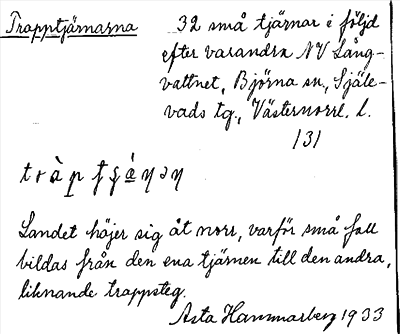 Trapptjärnarna 32 små tjärnar i följd
efter varandra NV Lång-
vattnet, Björna sn, Själe-
vads tg., Västernorrl. l.
131
Landet höjer sig åt norr, varför små fall
bildas från den ena tjärnen till den andra,
liknande trappsteg.
Asta Hammarberg 1933